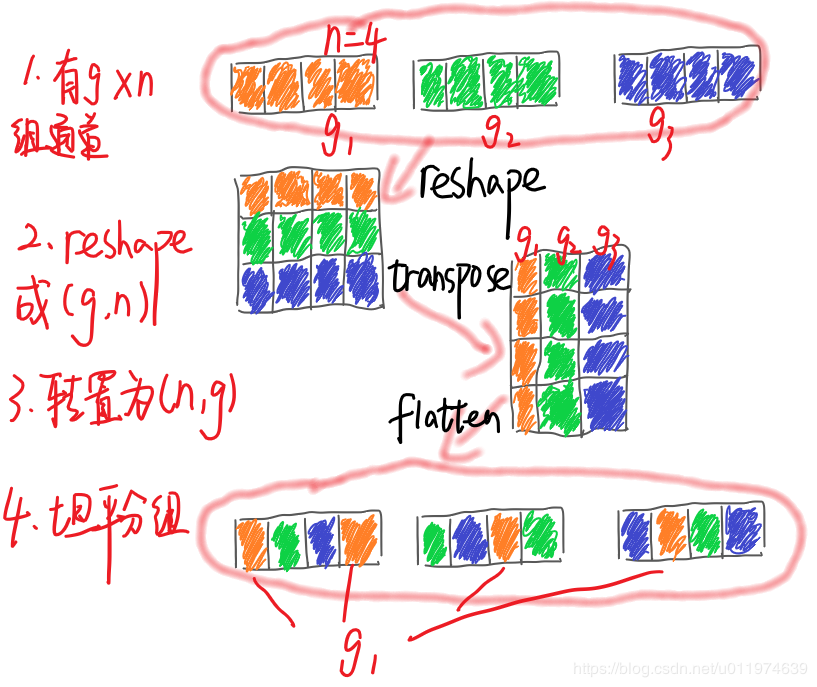 n=4
1. 有g×n
组通道
g1
g2
g3
reshape
2. reshape
成(g,n)
g1 g2 g3
transpose
3. 转置为(n,g)
flatten
4. 坦平分组
g1
https://blog.csdn.net/u011974639